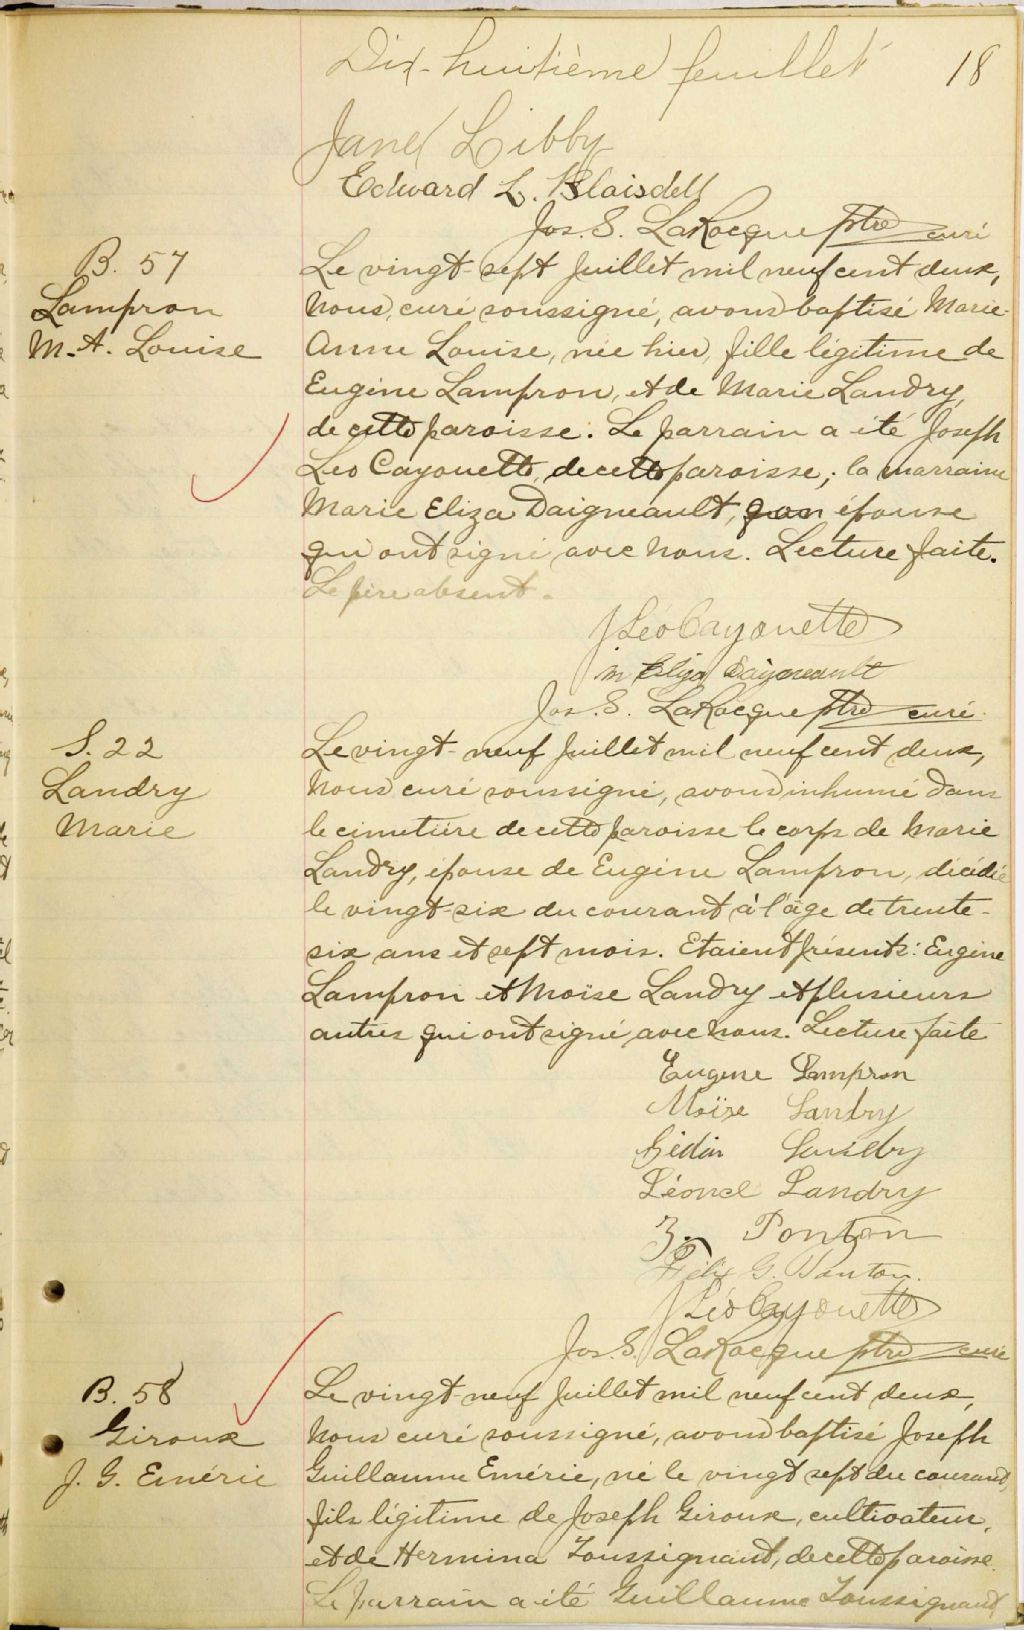 Dix-huitième feuillet 18
Jane Libby
Edward L. Blaisdell
Jos. S. LaRocque ptre curé
B. 57
Lampron
M.-A. Louise
Le vingt-sept Juillet mil neuf cent deux,
Nous, curé soussigné, avons baptisé Marie-
Anne Louise, née hier, fille légitime de
Eugène Lampron, et de Marie Landry,
de cette paroisse. Le parrain a été Joseph
Leo Cayouette, de cette paroisse; la marraine
Marie Eliza Daigneault, son épouse
qui ont signé avec Nous. Lecture faite.
Le père absent.
J Léo Cayouette
M Eliza Daigneault
Jos. S. LaRocque ptre curé
S. 22
Landry
Marie
Le vingt-neuf Juillet mil neuf cent deux,
Nous curé soussigné, avons inhumé dans
le cimetière de cette paroisse le corps de Marie
Landry, épouse de Eugène Lampron, décédée
le vingt-six du courant à l'âge de trente-
six ans et sept mois. Etaient présents: Eugène
Lampron et Moïse Landry et plusieurs
autres qui ont signé avec Nous. Lecture faite
Eugene Lampron
Moïse Landry
Gédéon Landry
Léonel Landry
Z. Ponton
Félix G. Ponton.
J Léo Cayouette
Jos. S. LaRocque ptre curé
B. 58
Giroux
J. G. Emérie
Le vingt-neuf Juillet mil neuf cent deux,
Nous curé soussigné, avons baptisé Joseph
Guillaume Emérie, né le vingt sept du courant,
fils légitime de Joseph Giroux, cultivateur,
et de Hermina Toussignant, de cette paroisse.
Le parrain a été Guillaume Toussignant